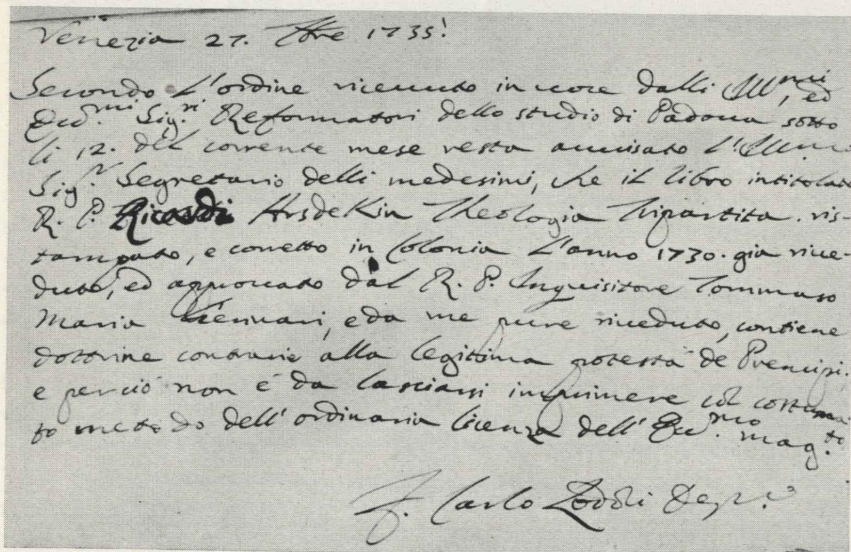 Venezia 27. Xbre 1735!
Secondo l'ordine riceuuto in uoce dalli Ill.mi, ed
Ecc.mi Sig.ri Reformatori dello studio di Padoua sotto
li 12. del corrente mese resta auuisato l'Ill.mo
Sig.r Segretario delli medesimi, che il libro intitolato
R. P. Ricardi Arsdekin Theologia Tripartita. ris-
tampato, e corretto in Colonia l'anno 1730. già riue-
duto, ed approuato dal R. P. Inquisitore Tommaso
Maria Gennari, e da me pure riueduto, contiene
dottrine contrarie alla legittima potestà de Prencipi.
e perciò non è da lasciarsi imprimere col costuma-
to metodo dell'ordinaria licenza dell'Ecc.mo mag.to
F. Carlo Lodoli